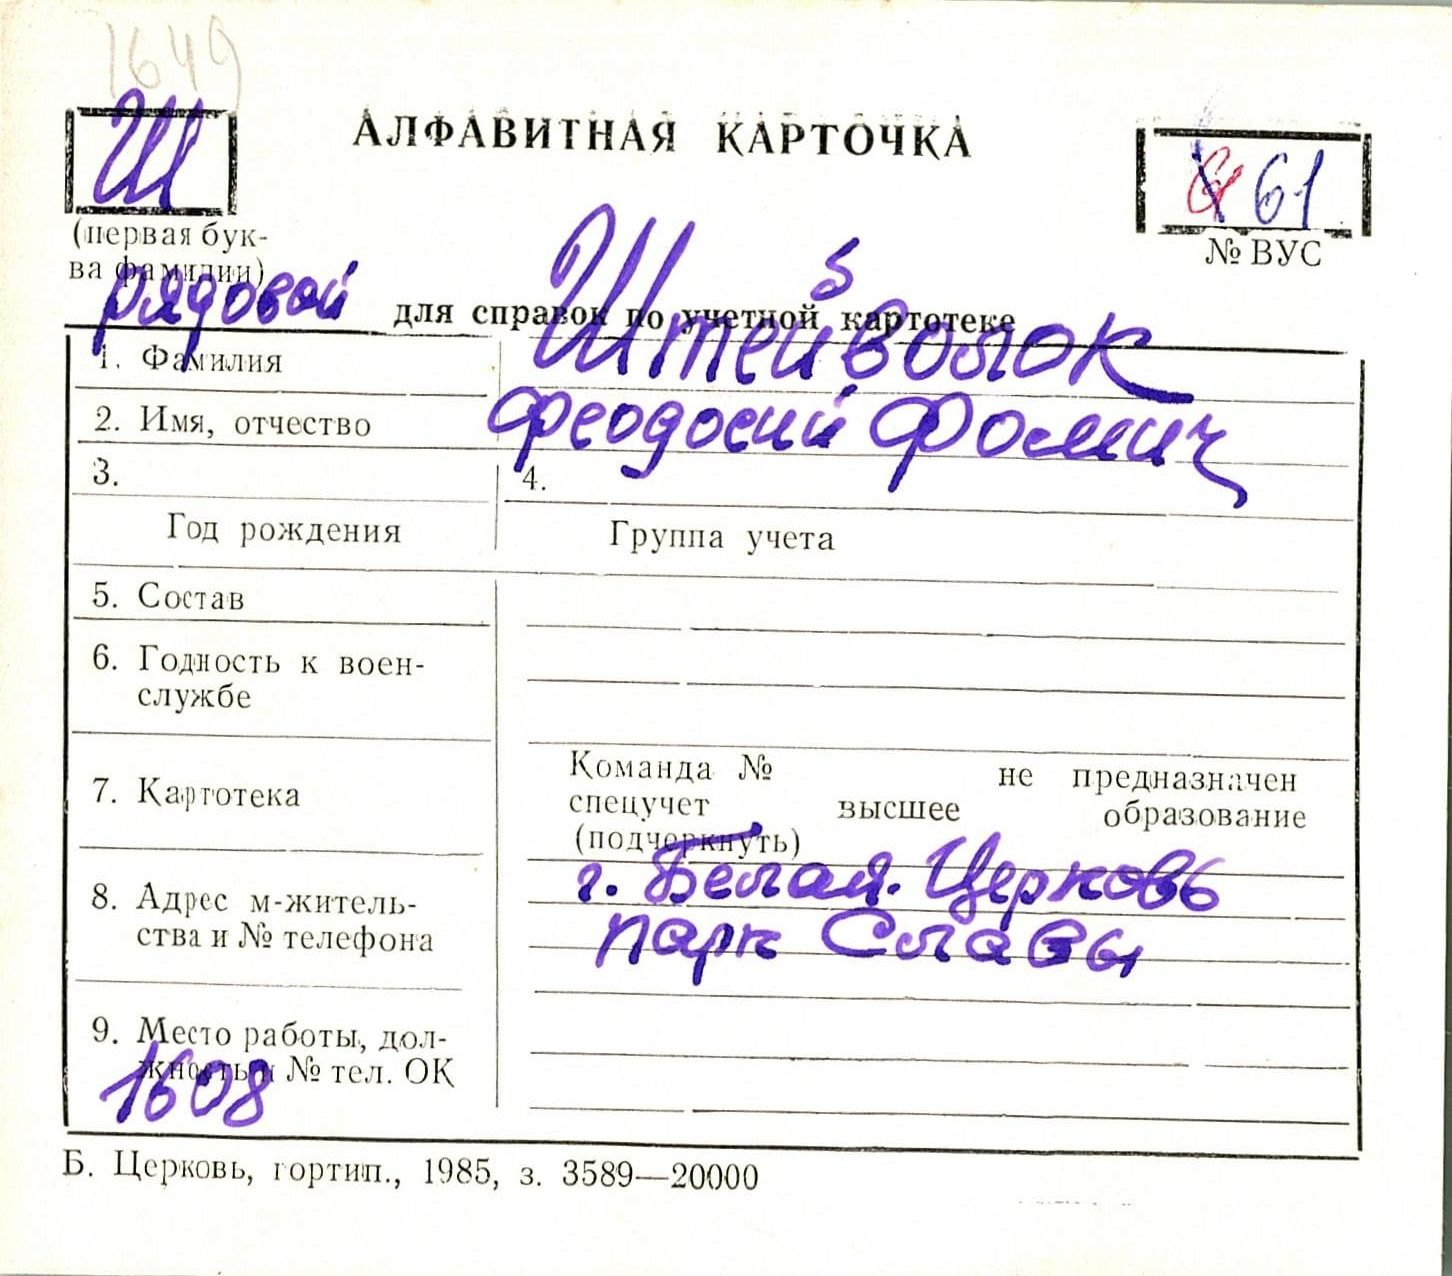 1649
Ш
АЛФАВИТНАЯ КАРТОЧКА
61
(первая бук-
ва фамилии)
№ ВУС
рядовой
для справок по учетной картотеке
1. Фамилия Штейволок
2. Имя, отчество Феодосий Фомич
3. 4.
Год рождения Группа учета
5. Состав
6. Годность к воен-
службе
7. Картотека
Команда № не предназначен
спецучет высшее образование
(подчеркнуть)
8. Адрес м-житель-
ства и № телефона
г. Белая Церковь
парк Славы
9. Место работы, дол-
жность и № тел. ОК
1608
Б. Церковь, гортип., 1985, з. 3589—20000